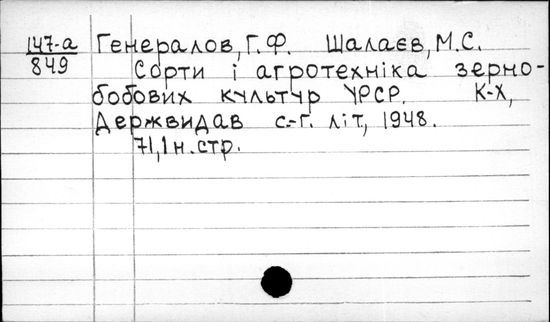 147-а Генералов, Г. Ф. Шалаєв, М.С.
849 Сорти і агротехніка зерно-
бобових культур УРСР. К-Х,
Держвидав с.-г. літ, 1948.
71,1 н. стр.